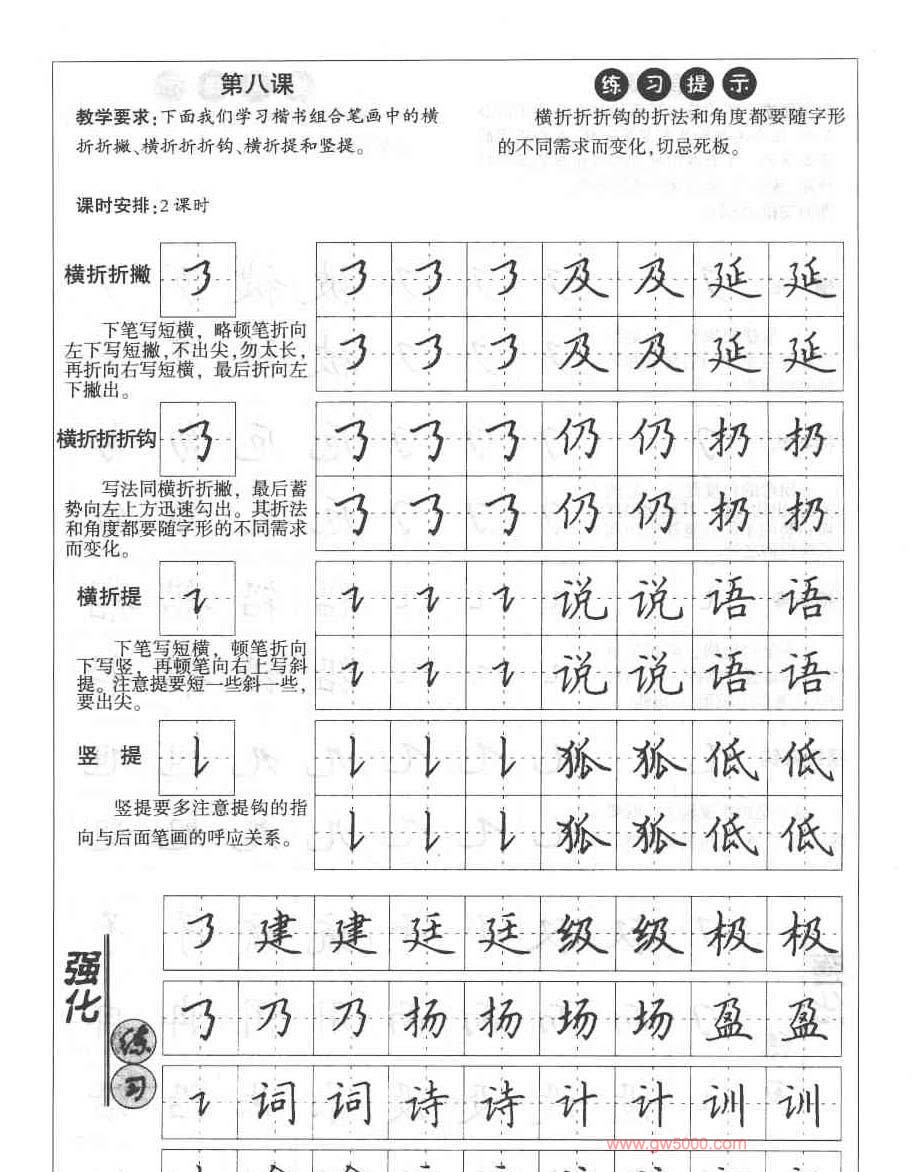 第八课
教学要求:下面我们学习楷书组合笔画中的横
折折撇、横折折折钩、横折提和竖提。
课时安排:2课时
练习提示
横折折折钩的折法和角度都要随字形
的不同需求而变化,切忌死板。
横折折撇 ㇋
下笔写短横,略顿笔折向
左下写短撇,不出尖,勿太长,
再折向右写短横,最后折向左
下撇出。
㇋ ㇋ ㇋ 及 及 延 延
㇋ ㇋ ㇋ 及 及 延 延
横折折折钩 ㇡
写法同横折折撇,最后蓄
势向左上方迅速勾出。其折法
和角度都要随字形的不同需求
而变化。
㇡ ㇡ ㇡ 仍 仍 扔 扔
㇡ ㇡ ㇡ 仍 仍 扔 扔
横折提 ㇊
下笔写短横,顿笔折向
下写竖,再顿笔向右上写斜
提。注意提要短一些斜一些,
要出尖。
㇊ ㇊ ㇊ 说 说 语 语
㇊ ㇊ ㇊ 说 说 语 语
竖 提 ㇙
竖提要多注意提钩的指
向与后面笔画的呼应关系。
㇙ ㇙ ㇙ 狐 狐 低 低
㇙ ㇙ ㇙ 狐 狐 低 低
强化
练习
㇋ 建 建 廷 廷 级 级 极 极
㇡ 乃 乃 扬 扬 场 场 盈 盈
㇊ 词 词 诗 诗 计 计 训 训
www.gw5000.com